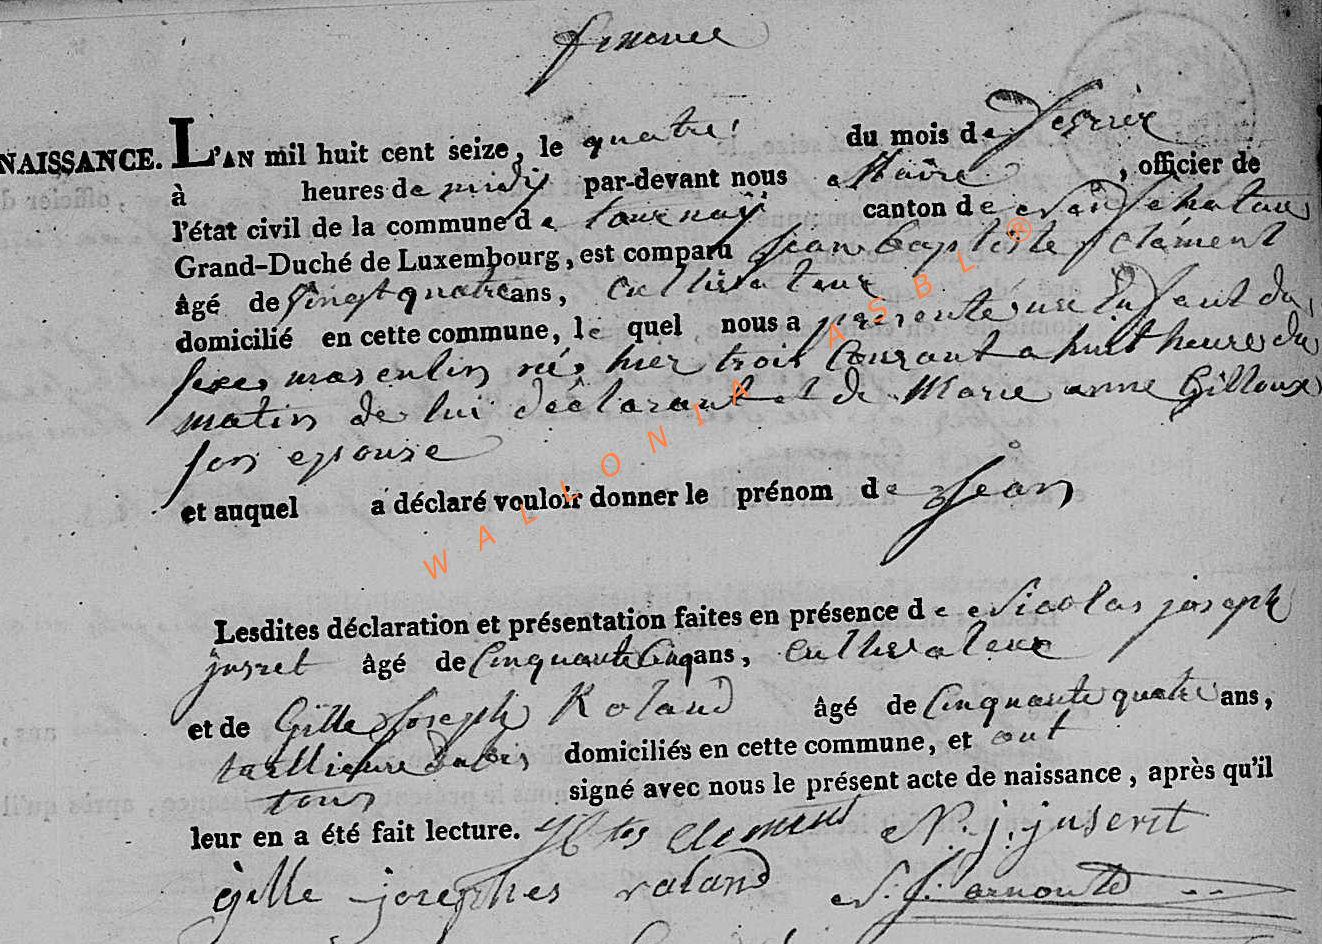 NAISSANCE. L'AN mil huit cent seize, le quatre du mois de fevrier
à heures de midy par-devant nous Maire, officier de
l'état civil de la commune de tournay canton de Neufchateau
Grand-Duché de Luxembourg, est comparu Jean baptiste Clement
âgé de vingt quatre ans, cultivateur
domicilié en cette commune, le quel nous a presenté un Enfant du
sexe masculin né hier trois Courant a huit heures du
matin de lui déclarant et de Marie anne Gilloux
son epouse
et auquel a déclaré vouloir donner le prénom de Jean
Lesdites déclaration et présentation faites en présence de Nicolas joseph
jusret âgé de Cinquante Cinq ans, cultivateur
et de Gille Joseph Roland âgé de Cinquante quatre ans,
domiciliés en cette commune, et ont
tous signé avec nous le présent acte de naissance, après qu'il
leur en a été fait lecture. clement N. j. juseret
gille josephes roland